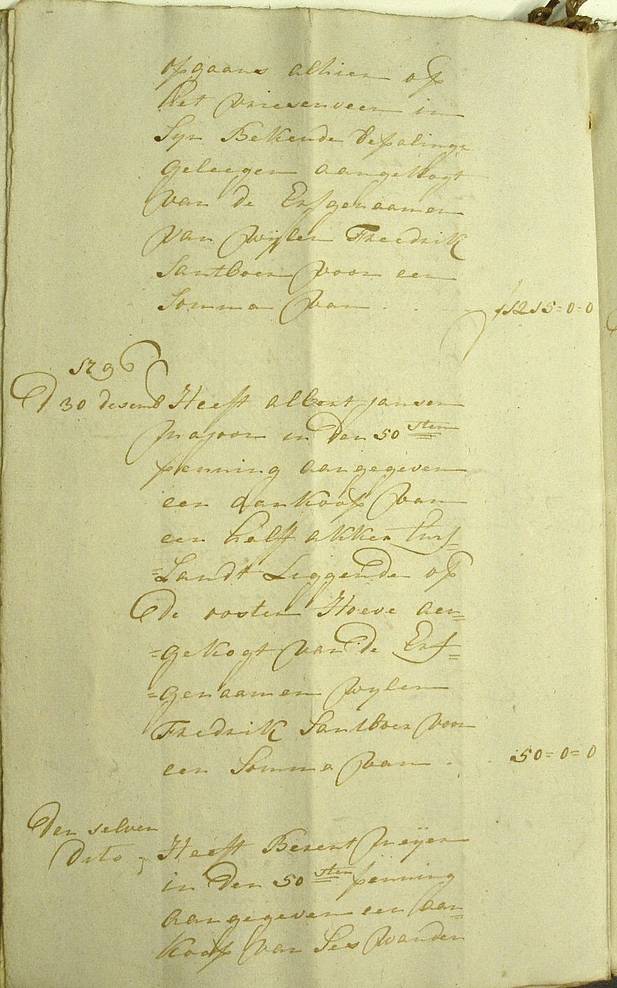 opgaans alhier op
het vriesenveen in
Syn Bekende bepalinge
geleegen aangekogt
van de Erfgenaamen
van wylen Fredrik
Santboer voor een
Somma van . f 1215=0=0
1796
D 30 desemb Heeft albert jansen
in den 50 sten
penning aangegeven
een aankoop van
een half akker turf
=Landt Liggende op
De ooster Hoeve aen=
=gekogt van de Erf=
=genaamen wylen
Fredrik Santboer voor
een Somma van . 50=0=0
Den selven
Dito, Heeft Berent meijer
in den 50 sten penning
aangegeven een aan=
koop van Ses wanden